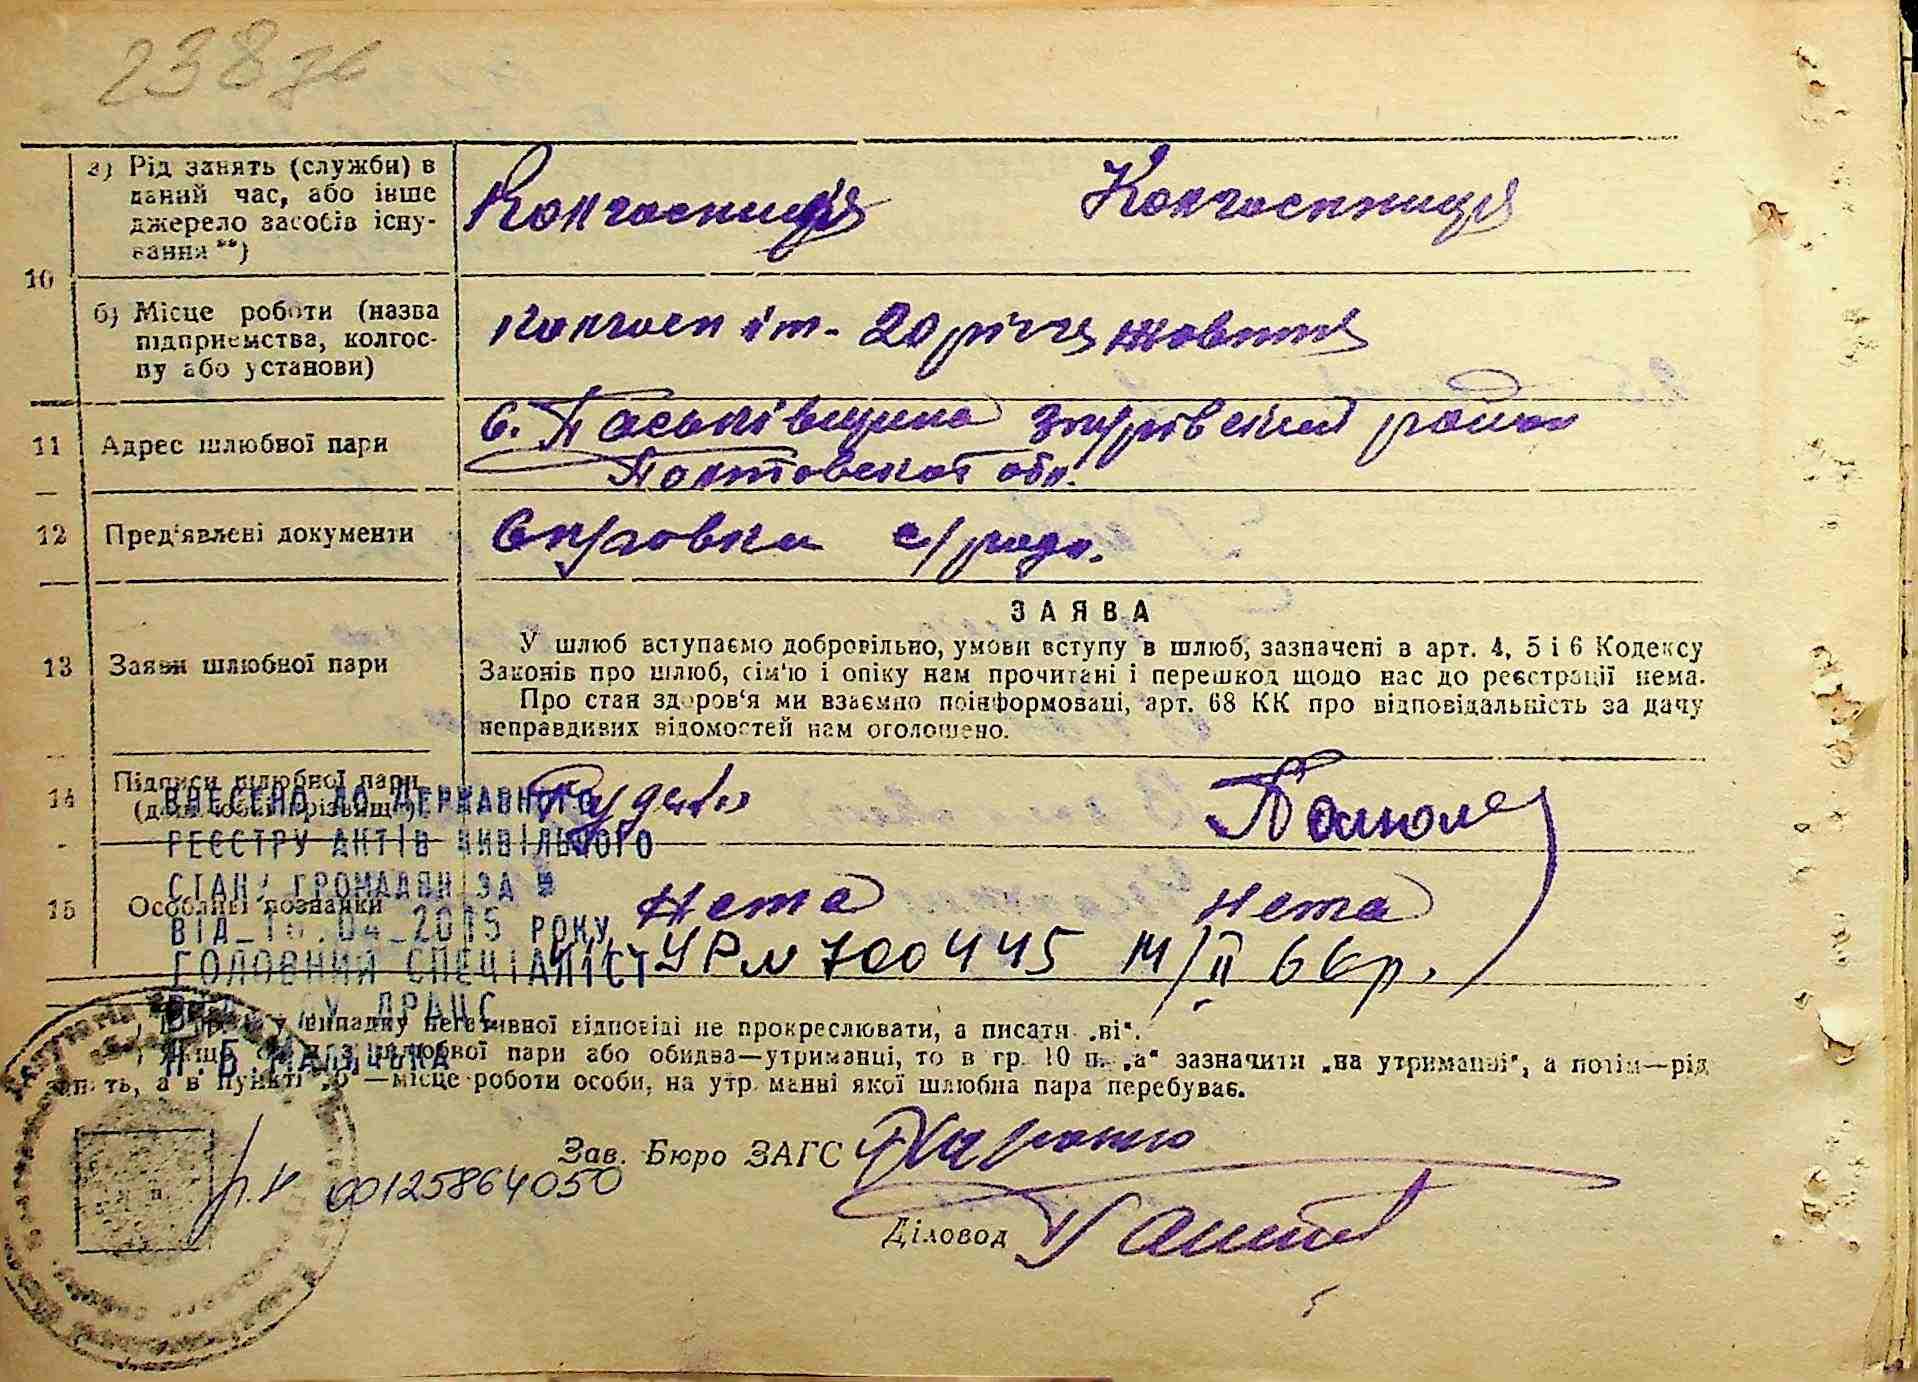 238
10
а) Рід занять (служби) в
даний час, або інше
джерело засобів існу-
вання **)
Колгоспниця Колгоспниця
б) Місце роботи (назва
підприємства, колгос-
пу або установи)
колгосп ім. 20 річчя жовтня
11 Адрес шлюбної пари
с. Паськівщина Згурівський район
Полтавської обл.
12 Пред'явлені документи
Справки с/ради.
13 Заяви шлюбної пари
ЗАЯВА
У шлюб вступаємо добровільно, умови вступу в шлюб, зазначені в арт. 4, 5 і 6 Кодексу
Законів про шлюб, сім'ю і опіку нам прочитані і перешкод щодо нас до реєстрації нема.
Про стан здоров'я ми взаємно поінформовані, арт. 68 КК про відповідальність за дачу
неправдивих відомостей нам оголошено.
14 Підписи шлюбної пари
15 Особливі познаки
Нета Нета
УР № 700445 14/II 66р.
ВНЕСЕНО ДО ДЕРЖАВНОГО
РЕЄСТРУ АКТІВ ЦИВІЛЬНОГО
СТАНУ ГРОМАДЯН ЗА №
ВІД 04 2015 РОКУ
ГОЛОВНИЙ СПЕЦІАЛІСТ
ДРАЦС
у випадку негативної відповіді не прокреслювати, а писати „ні“.
шлюбної пари або обидва—утриманці, то в гр. 10 п. „а“ зазначити „на утриманні“, а потім—рід
занять, а в пункті „б“—місце роботи особи, на утриманні якої шлюбна пара перебуває.
Зав. Бюро ЗАГС
00125864050
Діловод